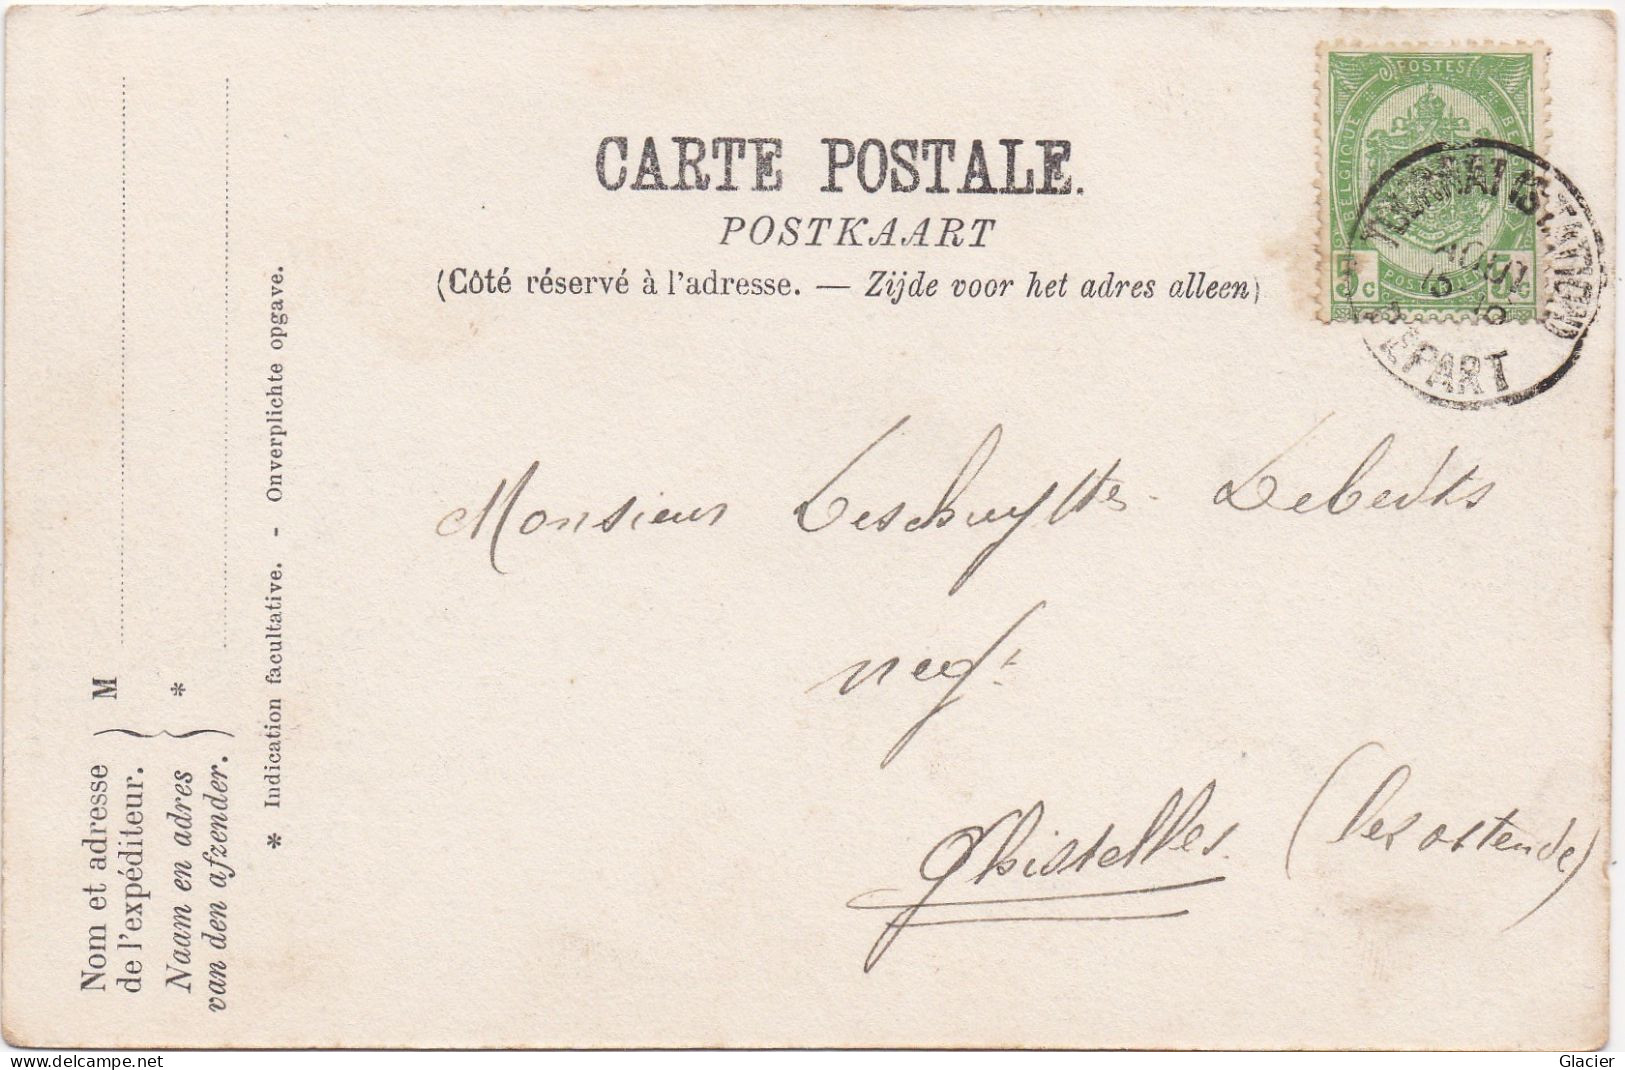 POSTES
BELGIQUE
5c 5c
DÉPART
CARTE POSTALE.
POSTKAART
(Côté réservé à l'adresse. — Zijde voor het adres alleen)
Monsieur
Ghistelles (lez ostende)
Nom et adresse
de l'expéditeur. } M
Naam en adres
van den afzender. } *
* Indication facultative. - Onverplichte opgave.
delcampe.net
Glacier